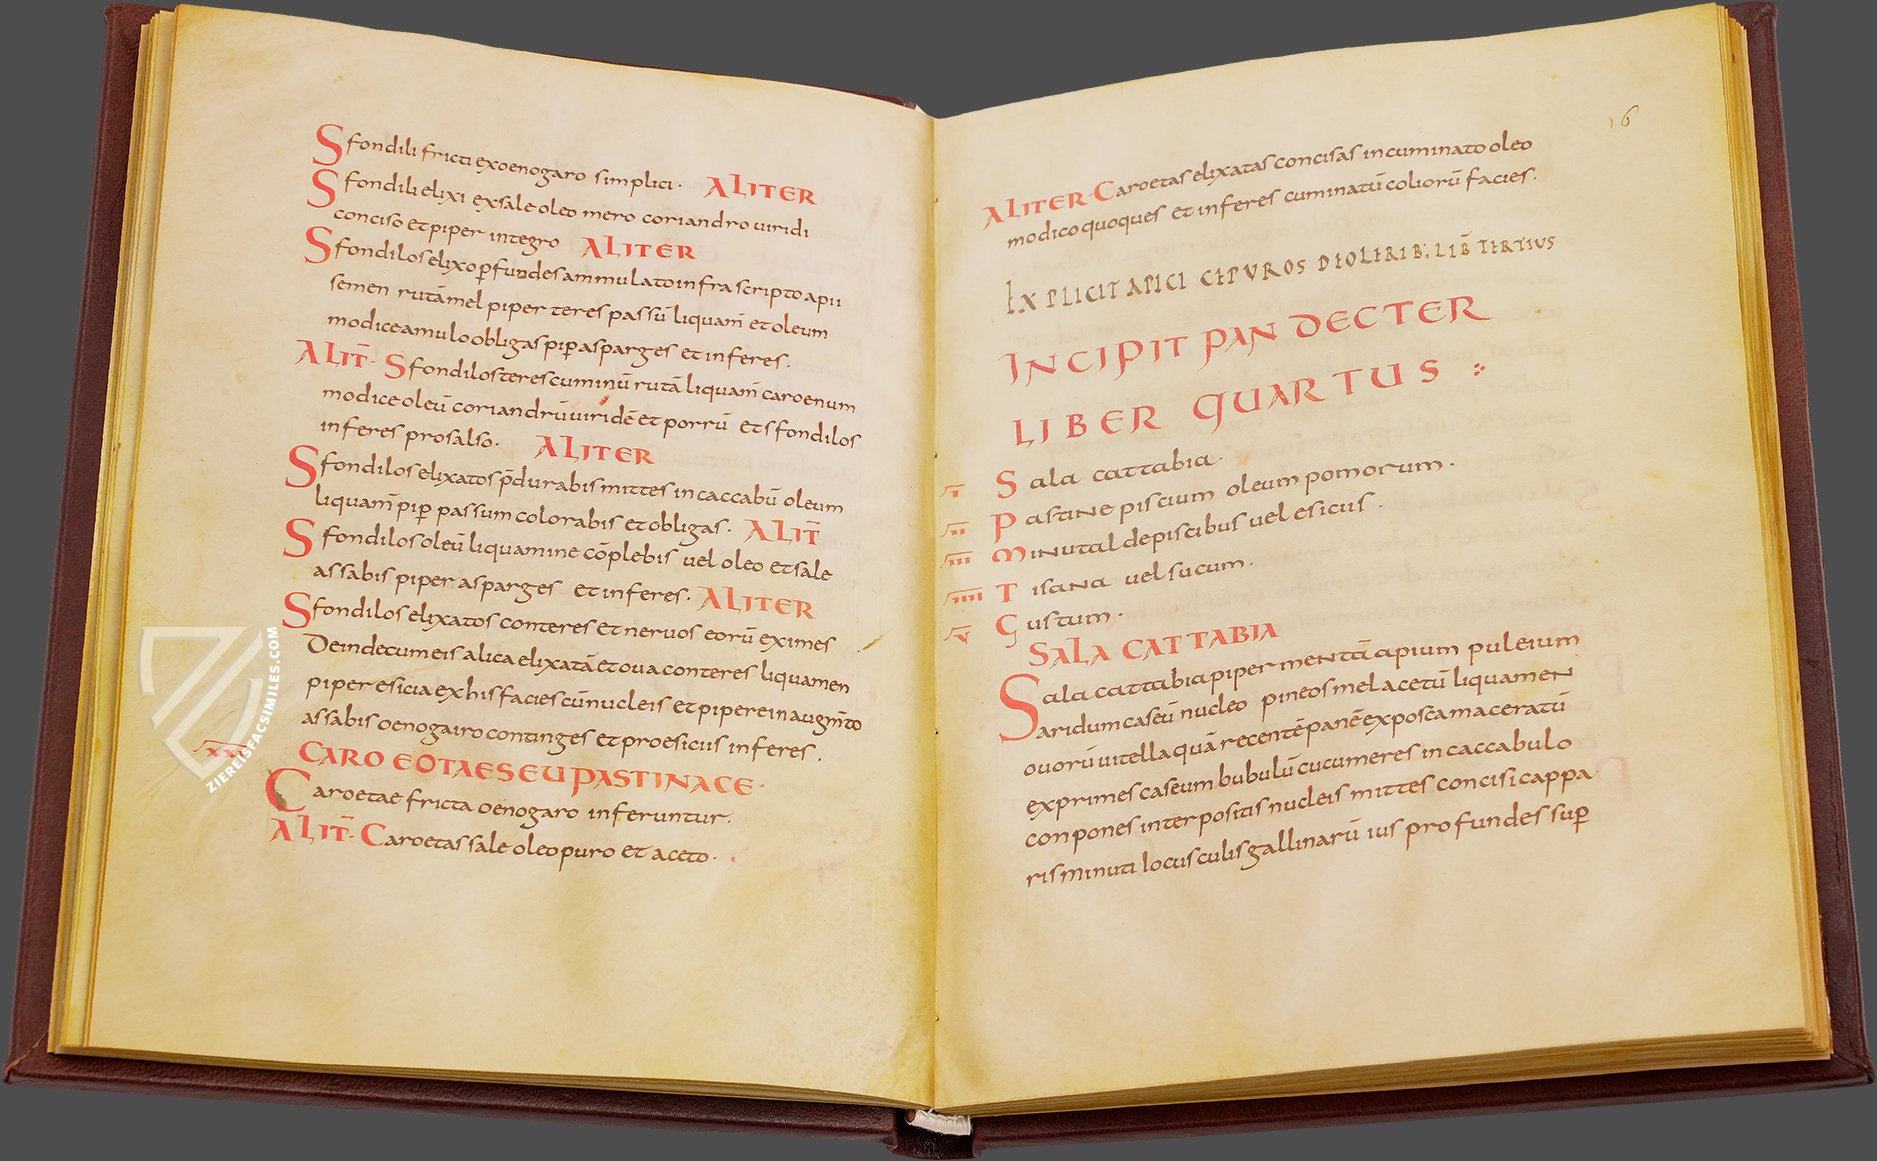 Sfondili fricti exoenogaro simplici· ALITER
Sfondili elixi exsale oleo mero coriandro uiridi
conciso et piper integro ALITER
Sfondilos elixo ꝑfundes ammulato infra scripto apii
semen rutāmel piper teres passū liquam̄ et oleum
modice amulo obligas pip̄ asparges et inferes.
ALIT̄· Sfondilos teres cuminū rutā liquam̄ caroenum
modice oleū coriandrū uiridē et porrū et sfondilos
inferes prosalso. ALITER
Sfondilos elixatos p̄durabis mittes in caccabū oleum
liquam̄ pip̄ passum colorabis et obligas. ALIT̄
Sfondilos oleū liquamine cōplebis uel oleo et sale
assabis piper asparges et inferes. ALITER
Sfondilos elixatos conteres et neruos eorū eximes
Deindecumeis alica elixatā et oua conteres liquamen
piper esicia ex his facies cū nucleis et piperein augm̄to
assabis oenogairo continges et proesiciis inferes.
XXI CARO EOTAESEU PASTINACE·
Caroetae fricta oenogaro inferuntur.
ALIT̄· Caroetas sale oleo puro et aceto.
ZIEREISFACSIMILES.COM
16
ALITER· Caroetas elixatas concisas incuminato oleo
modico quoques et inferes cuminatū coliorū facies.
EXPLICIT APICI CEPUROS DEOLIRIB. LIB̄ TERTIUS
INCIPIT PANDECTER
LIBER QUARTUS
I Sala cattabia.
II Pastine piscium oleum pomorum.
III Minutal de piscibus uel esiciis.
IIII Tisana uel sucum.
V Gustum.
SALA CATTABIA
Sala cattabia piper mentā apium puleium
aridum caseū nucleo pineos mel acetū liquamen
ouorū uitella quā recentē panē exposca maceratū
exprimes caseum bubulū cucumeres in caccabulo
conpones interpositis nucleis mittes concisi cappa
ris minuti locusculis gallinarū ius profundes sup̄